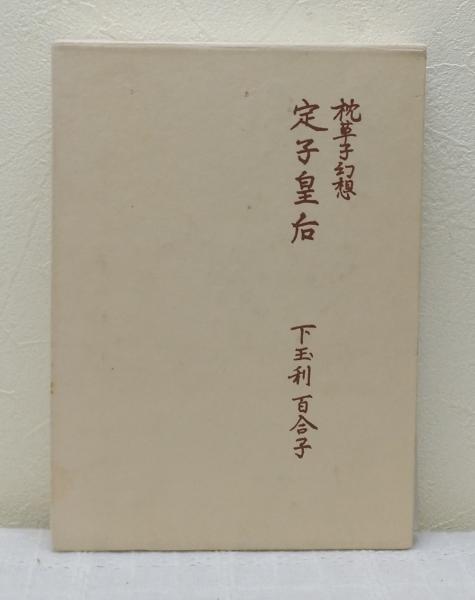 枕草子幻想
定子皇后
下玉利百合子